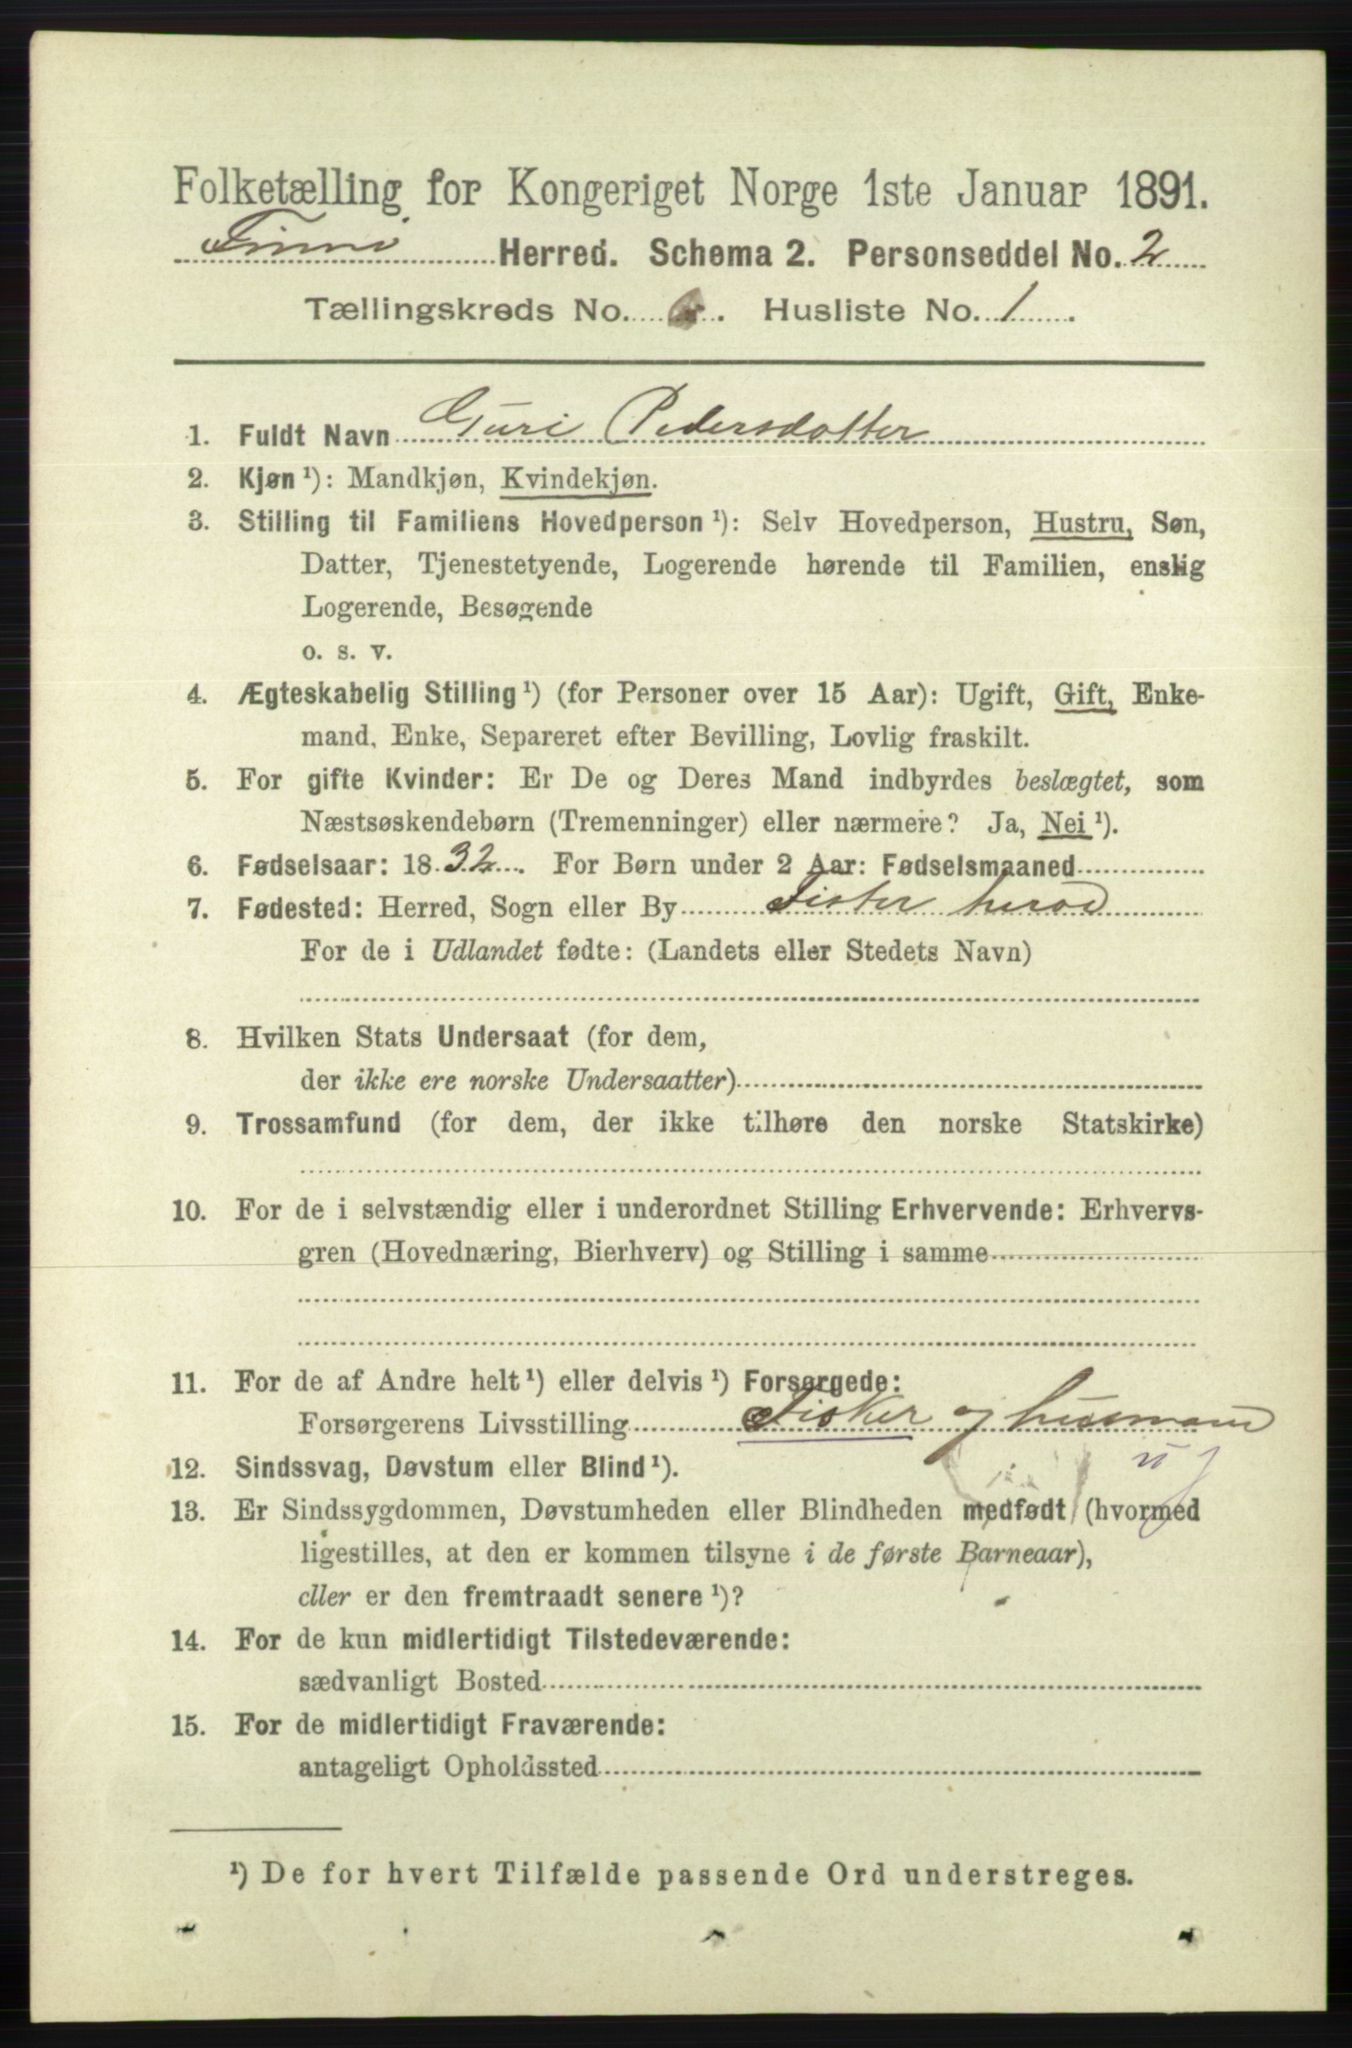 Folketælling for Kongeriget Norge 1ste Januar 1891.
Herred. Schema 2. Personseddel No. 2
Tællingskreds No. 6. Husliste No. 1.
1. Fuldt Navn Guri Pedersdatter
2. Kjøn ¹): Mandkjøn, Kvindekjøn.
3. Stilling til Familiens Hovedperson ¹): Selv Hovedperson, Hustru, Søn,
Datter, Tjenestetyende, Logerende hørende til Familien, enslig
Logerende, Besøgende
o. s. v.
4. Ægteskabelig Stilling ¹) (for Personer over 15 Aar): Ugift, Gift, Enke-
mand, Enke, Separeret efter Bevilling, Lovlig fraskilt.
5. For gifte Kvinder: Er De og Deres Mand indbyrdes beslægtet, som
Næstsøskendebørn (Tremenninger) eller nærmere? Ja, Nei ¹).
6. Fødselsaar: 1832. For Børn under 2 Aar: Fødselsmaaned
7. Fødested: Herred, Sogn eller By Fister herod
For de i Udlandet fødte: (Landets eller Stedets Navn)
8. Hvilken Stats Undersaat (for dem,
der ikke ere norske Undersaatter)
9. Trossamfund (for dem, der ikke tilhøre den norske Statskirke)
10. For de i selvstændig eller i underordnet Stilling Erhvervende: Erhvervs-
gren (Hovednæring, Bierhverv) og Stilling i samme
11. For de af Andre helt ¹) eller delvis ¹) Forsørgede:
Forsørgerens Livsstilling Fisker og husmand
12. Sindssvag, Døvstum eller Blind ¹).
13. Er Sindssygdommen, Døvstumheden eller Blindheden medfødt (hvormed
ligestilles, at den er kommen tilsyne i de første Barneaar),
eller er den fremtraadt senere ¹)?
14. For de kun midlertidigt Tilstedeværende:
sædvanligt Bosted
15. For de midlertidigt Fraværende:
antageligt Opholdssted
¹) De for hvert Tilfælde passende Ord understreges.